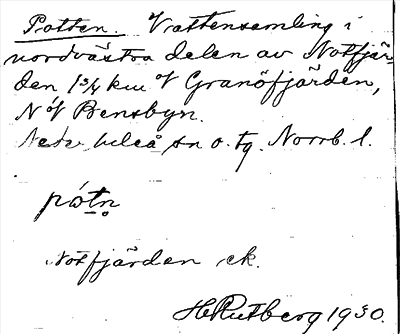 Potten. Vattensamling i
nordvästra delen av Notfjär-
den 1 3/4 km V Granöfjärden,
N of Bensbyn.
Neder luleå sn o. tg. Norrb. l.
pótn
Notfjärden ek.
H Rutberg 1930.